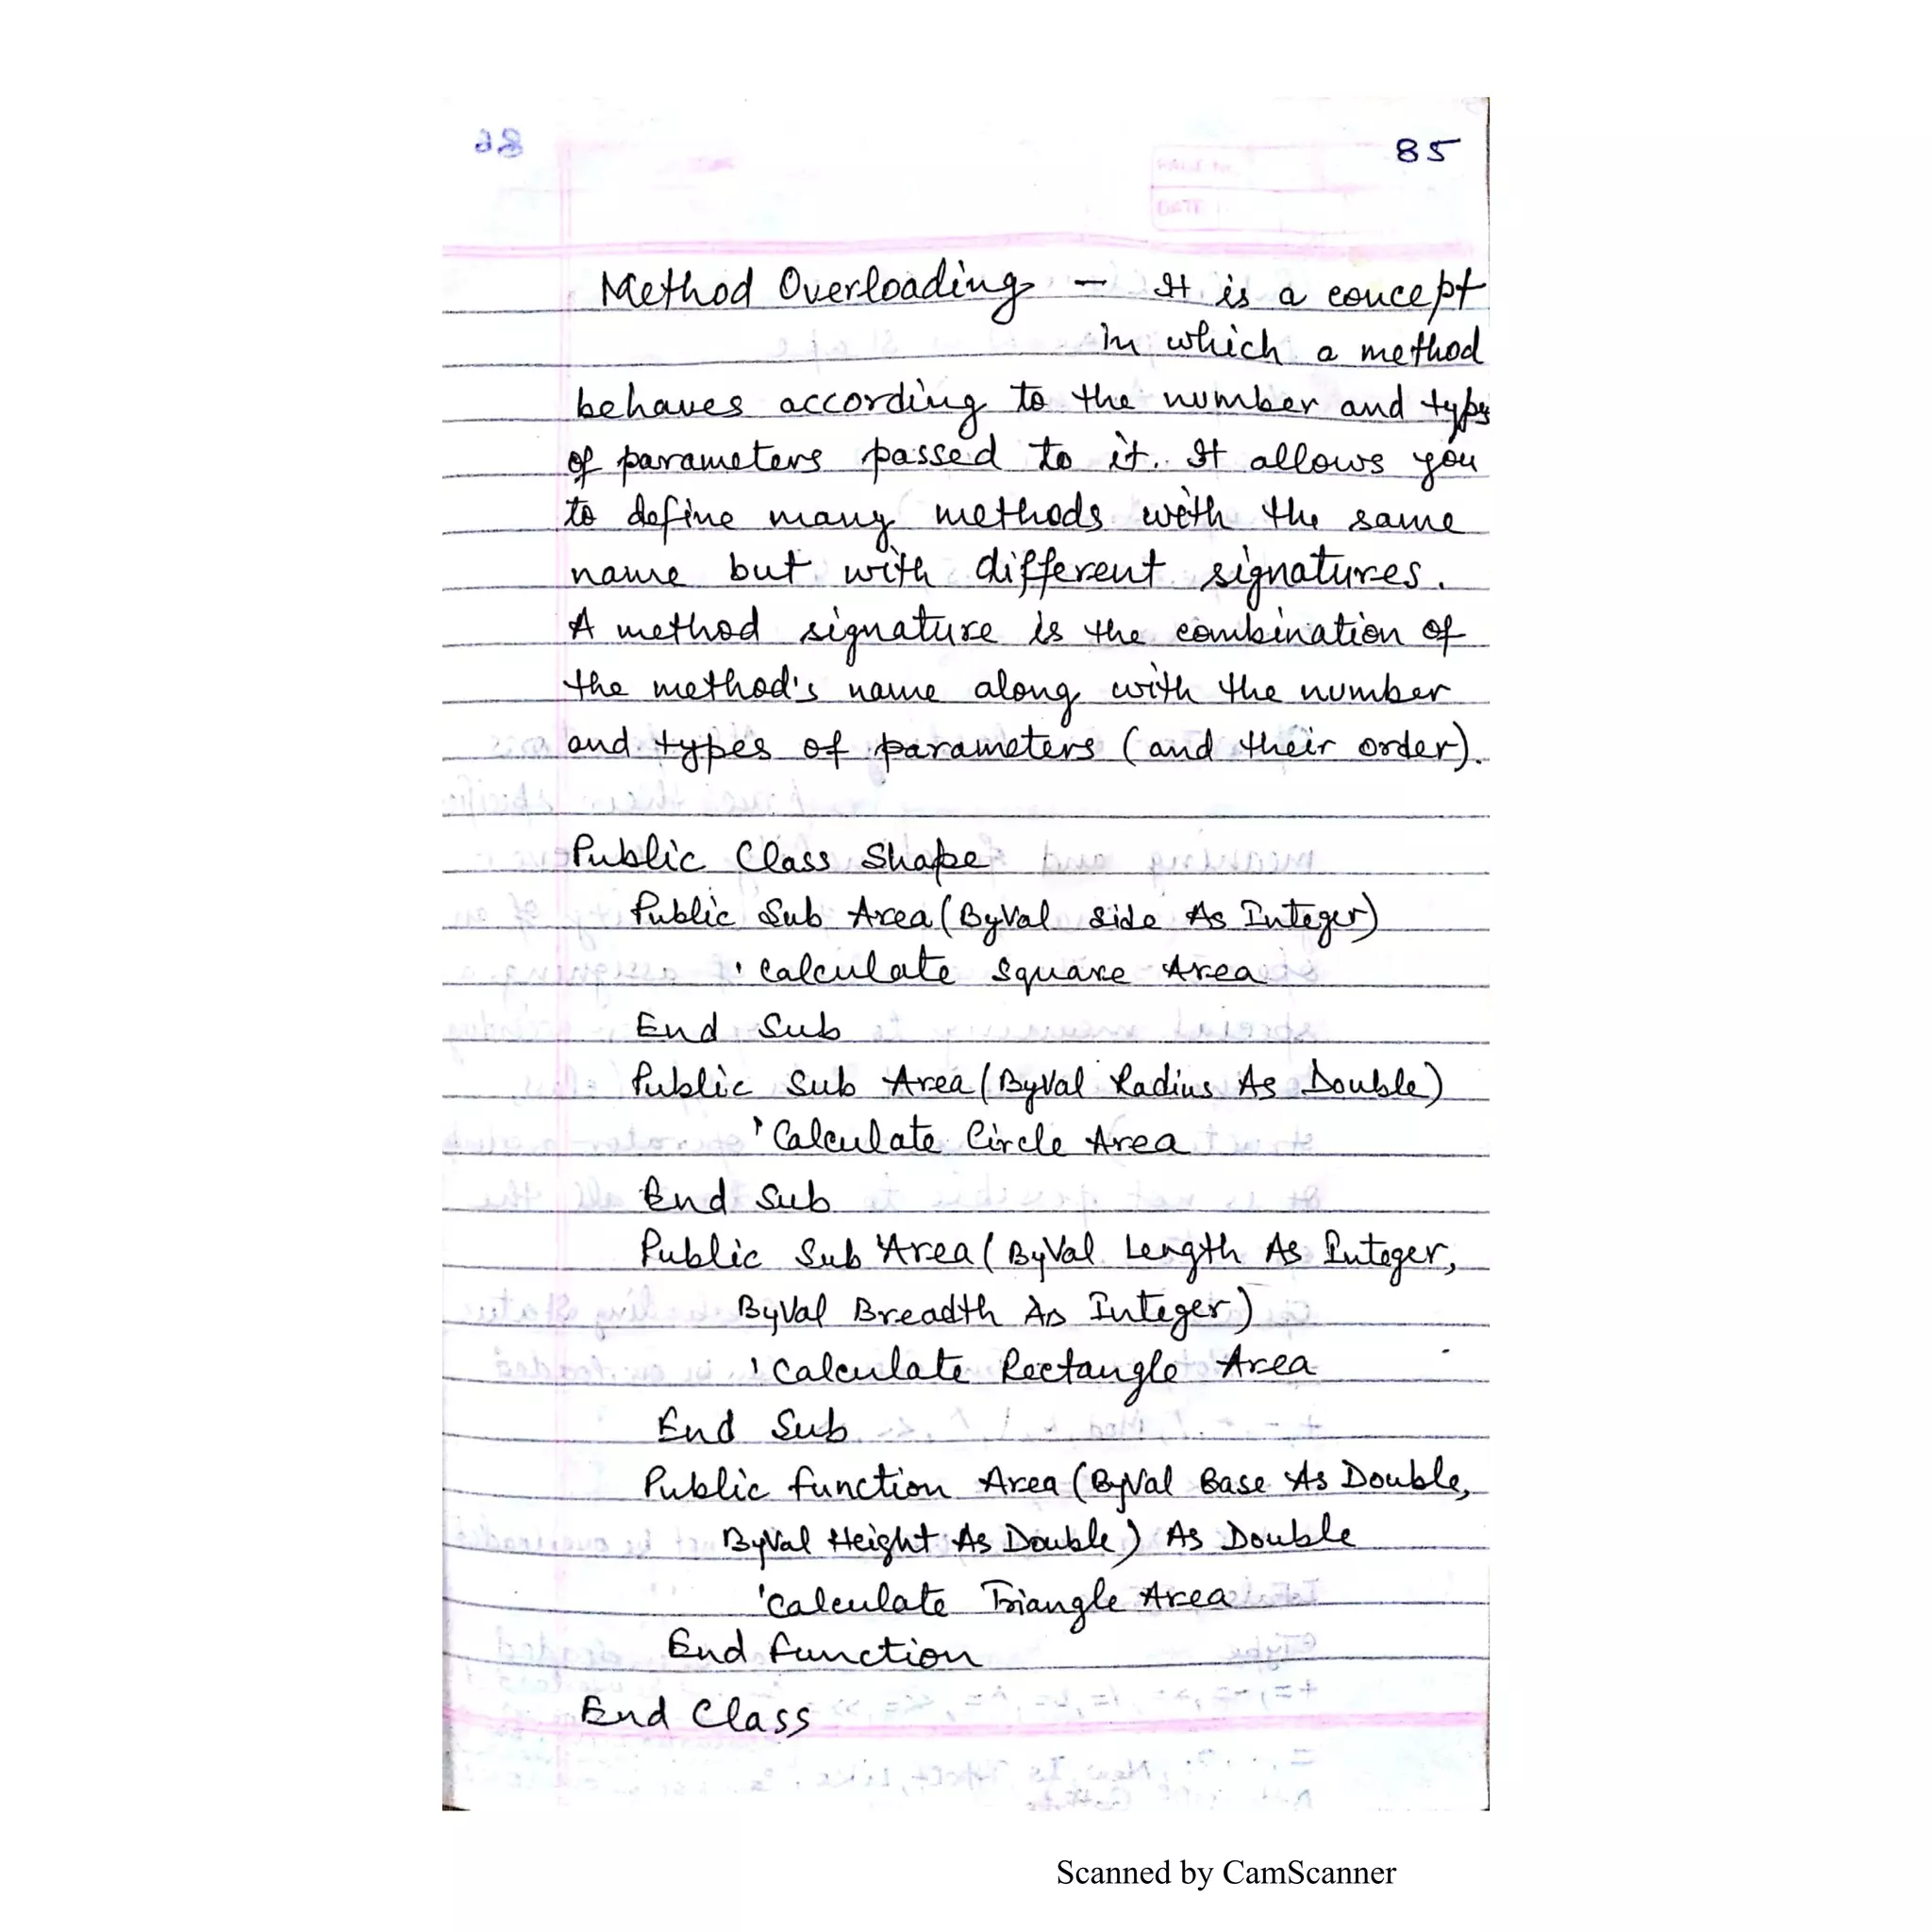 85
Method Overloading - It is a concept
in which a method
behaves according to the number and types
of parameters passed to it. It allows you
to define many methods with the same
name but with different signatures.
A method signature is the combination of
the method's name along with the number
and types of parameters (and their order).
Public Class Shape
Public Sub Area(ByVal side As Integer)
'Calculate Square Area
End Sub
Public Sub Area(ByVal Radius As Double)
'Calculate Circle Area
End Sub
Public Sub Area(ByVal Length As Integer,
ByVal Breadth As Integer)
'Calculate Rectangle Area
End Sub
Public function Area(ByVal Base As Double,
ByVal Height As Double) As Double
'Calculate Triangle Area
End function
End Class
Scanned by CamScanner